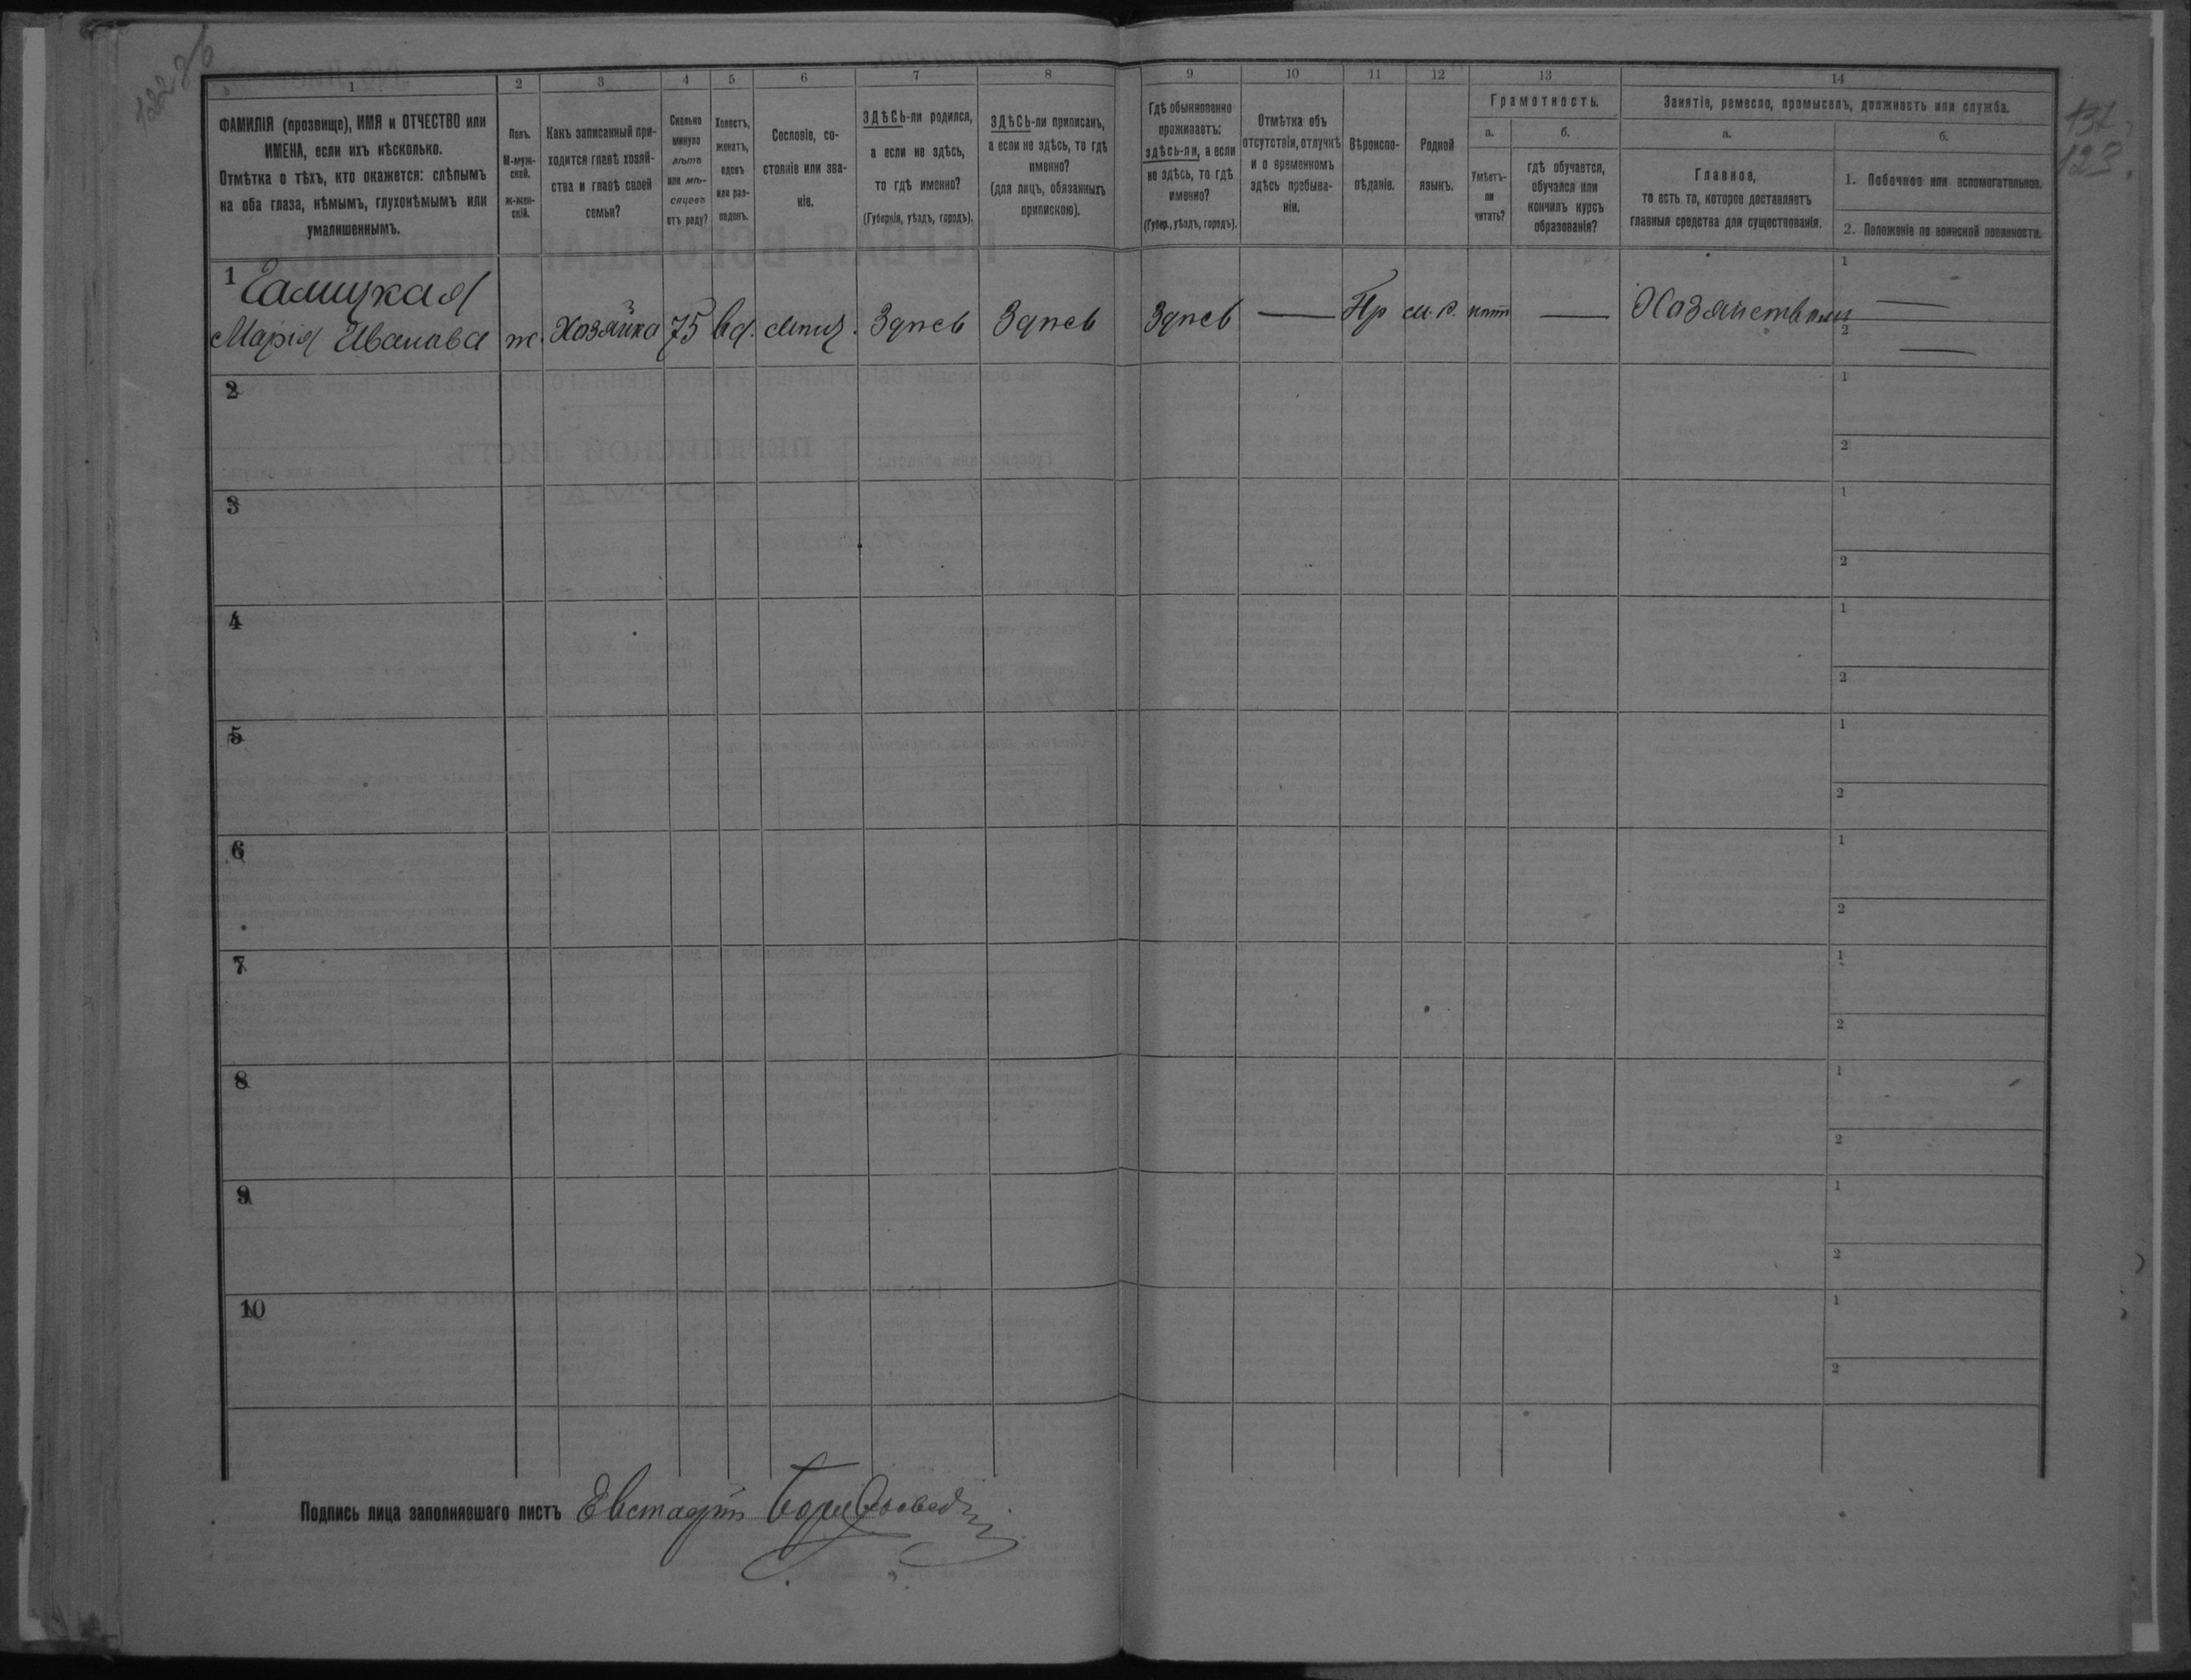 122 об
137
123
1
2
3
4
5
6
7
8
9
10
11
12
13
14
ФАМИЛІЯ (прозвище), ИМЯ и ОТЧЕСТВО или
ИМЕНА, если ихъ нѣсколько.
Отмѣтка о тѣхъ, кто окажется: слѣпымъ
на оба глаза, нѣмымъ, глухонѣмымъ или
умалишеннымъ.
Полъ.
М-муж-
ской.
ж-жен-
скій.
Какъ записанный при-
ходится главѣ хозяй-
ства и главѣ своей
семьи?
Сколько
минуло
лѣтъ
или мѣ-
сяцевъ
отъ роду?
Холостъ,
женатъ,
вдовъ
или раз-
веденъ.
Сословіе, со-
стояніе или зва-
ніе.
ЗДѢСЬ-ли родился,
а если не здѣсь,
то гдѣ именно?
(Губернія, уѣздъ, городъ).
ЗДѢСЬ-ли приписанъ,
а если не здѣсь, то гдѣ
именно?
(для лицъ, обязанныхъ
припискою).
Гдѣ обыкновенно
проживаетъ:
здѣсь-ли, а если
не здѣсь, то гдѣ
именно?
(Губер., уѣздъ, городъ).
Отмѣтка объ
отсутствіи, отлучкѣ
и о временномъ
здѣсь пребыва-
ніи.
Вѣроиспо-
вѣданіе.
Родной
языкъ.
Грамотность.
а.
Умѣетъ-
ли
читать?
б.
гдѣ обучается,
обучался или
кончилъ курсъ
образованія?
Занятіе, ремесло, промыселъ, должность или служба.
а.
Главное,
то есть то, которое доставляетъ
главныя средства для существованія.
б.
1. Побочное или вспомогательное.
2. Положеніе по воинской повинности.
1 Галицкая
Марія Иванова ж. Хозяйка 75 вд. Здѣсь Здѣсь Здѣсь — Пр м.р. нѣтъ —
1 —
2 —
2
1
2
3
1
2
4
1
2
5
1
2
6
1
2
7
1
2
8
1
2
9
1
2
10
1
2
Подпись лица заполнявшаго листъ Евстафій